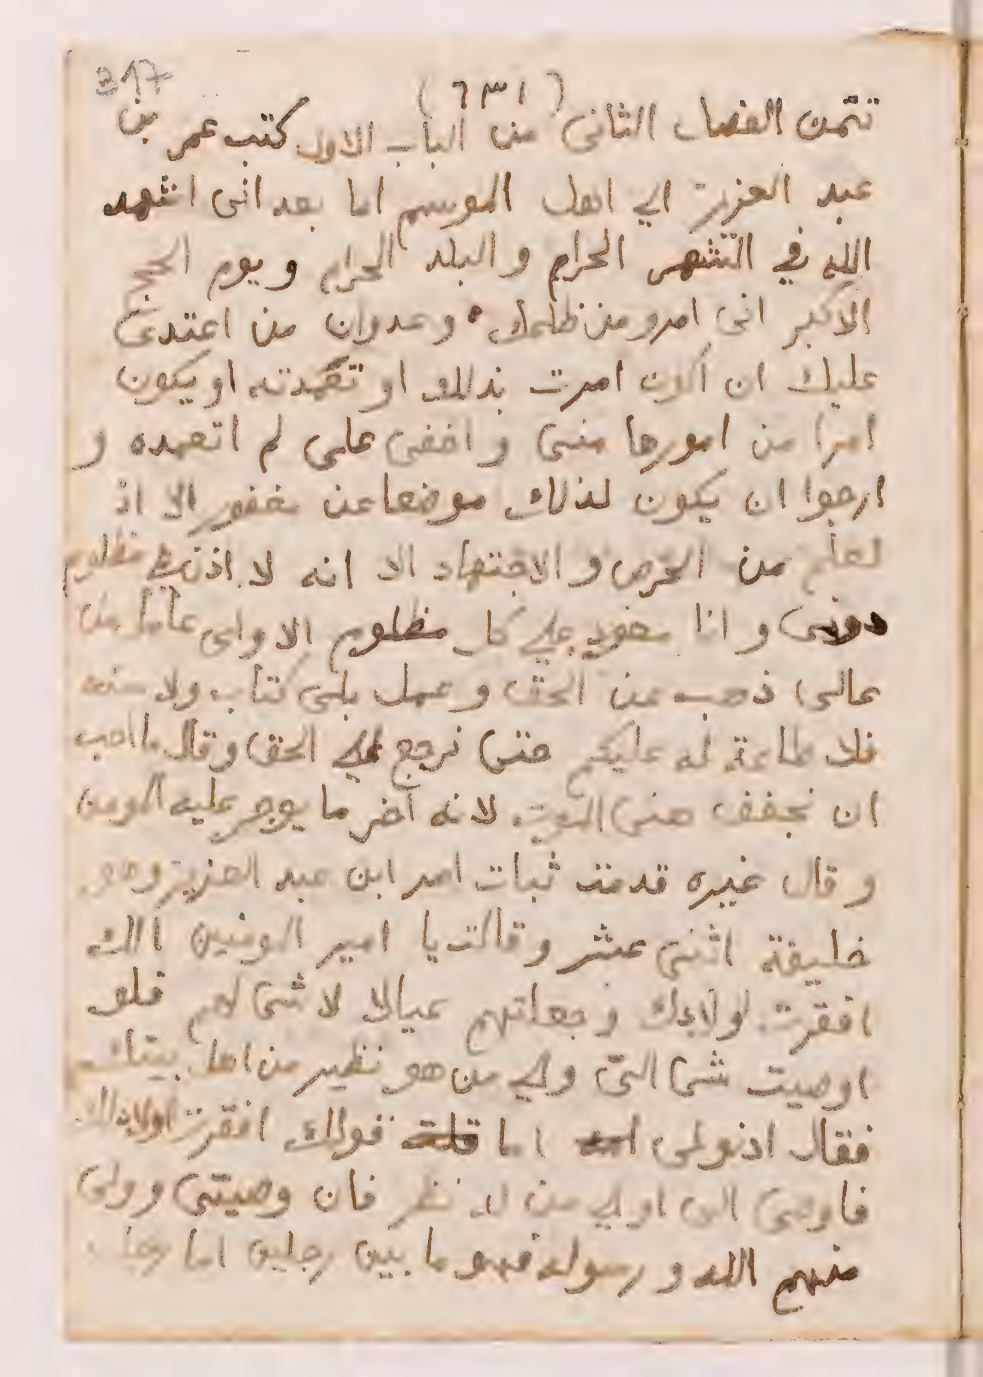 317
(١٣٦)
تتمن الفصل الثانى من الباب الاول كتب عمر بن
عبد العزيز الي اهل الموسم اما بعد انى اشهد
الله في الشهر الحرام و البلد الحرام و يوم الحج
الاكبر انى امرو من ظلمك و عدوان من اعتدى
عليك ان اكون امرت بذلك او تعمدته او يكون
امرا من امورها منى و اخفى على لم اتعمده و
ارجوا ان يكون لذلك موضعا عن مغفور الا اذ
لعلم من الحرص و الاجتهاد الا انه لا اذن في مظلوم
دونى و انا معود علي كل مظلوم الا واى عامل من
عمالى ذهب عن الحق و عمل بلى كتاب ولا سنه
فلا طاعة له عليكم حتى نرجع الي الحق و قال ما احب
ان نجفف عنى الموت لانه اخر ما يوجر عليه المومن
و قال غيره قدمت ثبات امر ابن عبد العزيز وهو
خليفة اثنى عشر و قالت يا امير المومنين الك
افقرت اولادك و جعلتهم عيالا لا شى لهم فلو
اوصيت شى الىّ والي من هو نظير من اهل بيتك
فقال اذنولى اما قولك افقرت اولادك
فاوصى الى اولي من له نظر فان وصيتى وولى
منهم الله و رسوله فهو ما بين رجلين اما رجل